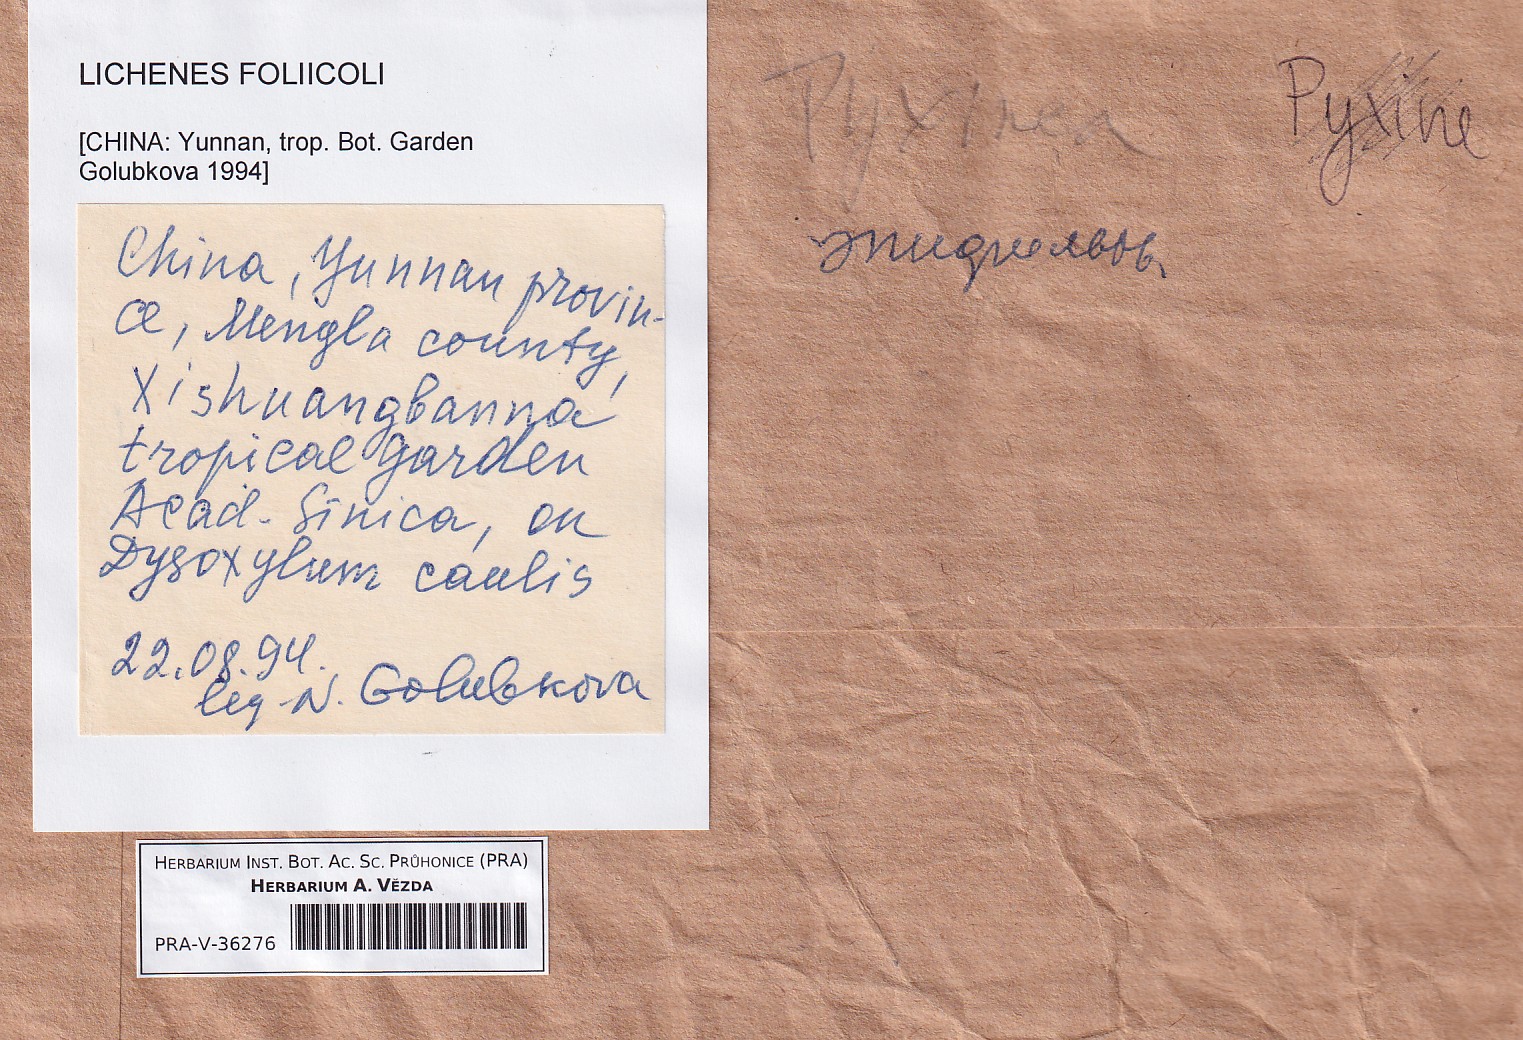 LICHENES FOLIICOLI
[CHINA: Yunnan, trop. Bot. Garden
Golubkova 1994]
China, Yunnan provin-
ce, Mengla county,
Xishuangbanna
tropical garden
Acad. Sinica, on
Dysoxylum caulis
22.08.94.
leg N. Golubkova
Pyxinea
Pyxine
HERBARIUM INST. BOT. AC. SC. PRŮHONICE (PRA)
HERBARIUM A. VĚZDA
PRA-V-36276